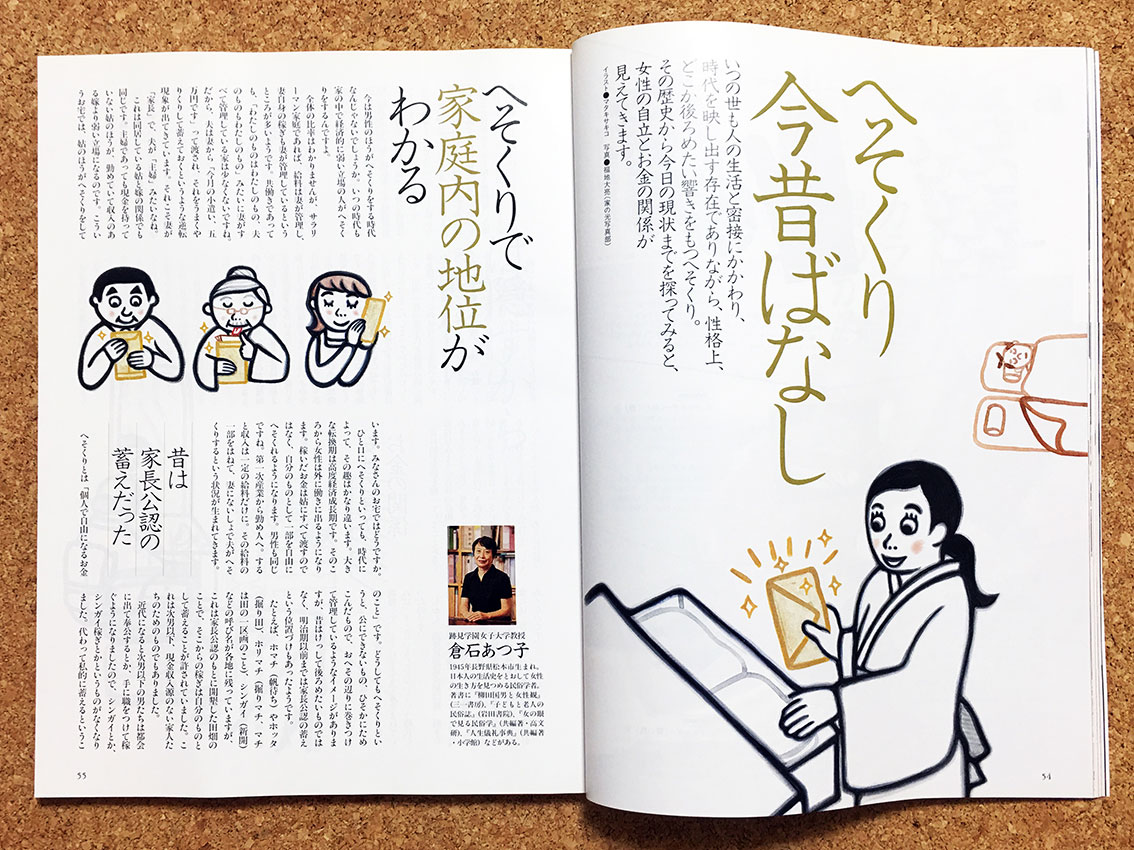 へそくり
今昔ばなし
いつの世も人の生活と密接にかかわり、
時代を映し出す存在でありながら、性格上、
どこか後ろめたい響きをもつへそくり。
その歴史から今日の現状までを探ってみると、
女性の自立とお金の関係が
見えてきます。
イラスト●マタキサキコ 写真●福地大亮(家の光写真部)
54
へそくりで
家庭内の地位が
わかる
今は男性のほうがへそくりをする時代
なんじゃないでしょうか。いつの時代も
家の中で経済的に弱い立場の人がへそく
りをするんですよ。
全体の比率はわかりませんが、サラリ
ーマン家庭であれば、給料は妻が管理し、
妻自身の稼ぎも妻が管理しているという
ところが多いようです。共働きであって
も、「わたしのものはわたしのもの、夫
のものもわたしのもの」みたいに妻がす
べて管理している家は少なくないですね。
だから、夫は妻から、「今月の小遣い、五
万円です」って渡され、それをうまくや
りくりして蓄えておくというような逆転
現象が出てきています。それこそ、妻が
「家長」で、夫が「主婦」みたいなね。
これは同居している姑と嫁の関係でも
同じです。主婦であっても現金を持って
いない姑のほうが、勤めていて収入のあ
る嫁より弱い立場になるのです。こうい
うお宅では、姑のほうがへそくりをして
います。みなさんのお宅ではどうですか。
ひと口にへそくりといっても、時代に
よって、その趣はかなり違います。大き
な転換期は高度経済成長期です。そのこ
ろから女性は外に働きに出るようになり
ます。稼いだお金は姑にすべて渡すので
はなく、自分のものとして一部を自由に
へそくれるようになります。男性も同じ
ですね。第一次産業から勤め人へ。する
と収入は一定の給料だけに。その給料の
一部をはねて、妻にないしょで夫がへそ
くりするという状況が生まれてきます。
昔は
家長公認の
蓄えだった
へそくりとは「個人で自由になるお金
のこと」です。どうしてもへそくりとい
うと、公にできないもの、ひそかにため
こんだもので、おへその辺りに巻きつけ
て管理しているようなイメージがありま
すが、昔はけっして後ろめたいものでは
なく、明治期以前までは家長公認の蓄え
という位置づけもあったようです。
たとえば、ホマチ(帆待ち)やホッタ
(掘り田)、ホリマチ(掘りマチ、マチ
は田の一区画のこと)、シンガイ(新開)
などの呼び名が各地に残っていますが、
これは家長公認のもとに開墾した田畑の
ことで、そこからの稼ぎは自分のものと
して蓄えることが許されていました。こ
れは次男以下、現金収入源のない家人た
ちのためのものでもありました。
近代になると次男以下の男たちは都会
に出て奉公するとか、手に職をつけて稼
ぐようになりましたので、シンガイとか、
シンガイ稼ぎとかいうものがなくなり
ました。代わって私的に蓄えるというこ
跡見学園女子大学教授
倉石あつ子
1945年長野県松本市生まれ。
日本人の生活史をとおして女性
の生き方を見つめる民俗学者。
著書に『柳田国男と女性観』
(三一書房)、『子どもと老人の
民俗誌』(岩田書院)、『女の眼
で見る民俗学』(共編著・高文
研)、『人生儀礼事典』(共編著
・小学館)などがある。
55